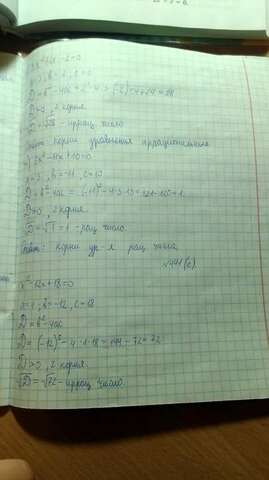 D = b² - 4ac = 2² - 4·3·(-2) = 4+24 = 28
D>0, 2 корня
√D = √28 - иррац. число
корни уравнения иррациональные
a=3, b=-11, c=10
D = b² - 4ac = (-11)² - 4·3·10 = 121-120=1
D>0, 2 корня
√D = √1 = 1 - рац. число
Ответ: корни ур-я рац. числа
x² - 12x + 18 = 0
a=1, b=-12, c=18
D = b² - 4ac
D = (-12)² - 4·1·18 = 144 - 72 = 72
D > 0, 2 корня
√D = √72 - иррац. число